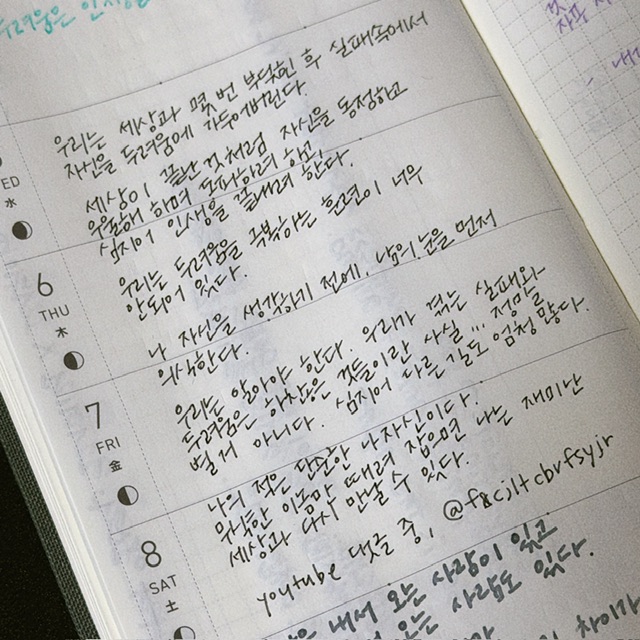 두려움은 인생을
우리는 세상과 몇 번 부딪힌 후 실패속에서
자신을 두려움에 가두어버린다.
세상이 끝난 것처럼 자신을 동정하고
우울해 하며 도피하려 하고
심지어 인생을 끝내려 한다.
우리는 두려움을 극복하는 훈련이 너무
안되어 있다.
나 자신을 생각하기 전에, 남의 눈을 먼저
의식한다.
우리는 알아야 한다. 우리가 겪는 실패와
두려움은 하찮은 것들이란 사실... 정말
별거 아니다. 심지어 다른 길도 엄청 많다.
나의 적은 단순한 나 자신이다.
위약한 이놈만 때려 잡으면 나는 재미난
세상과 다시 만날 수 있다.
youtube 댓글 중, @f8cjltcbvfsyjr
내서 오는 사람이 있고
오는 사람도 있다.
차이가
ED
水
6
THU
木
7
FRI
金
8
SAT
土